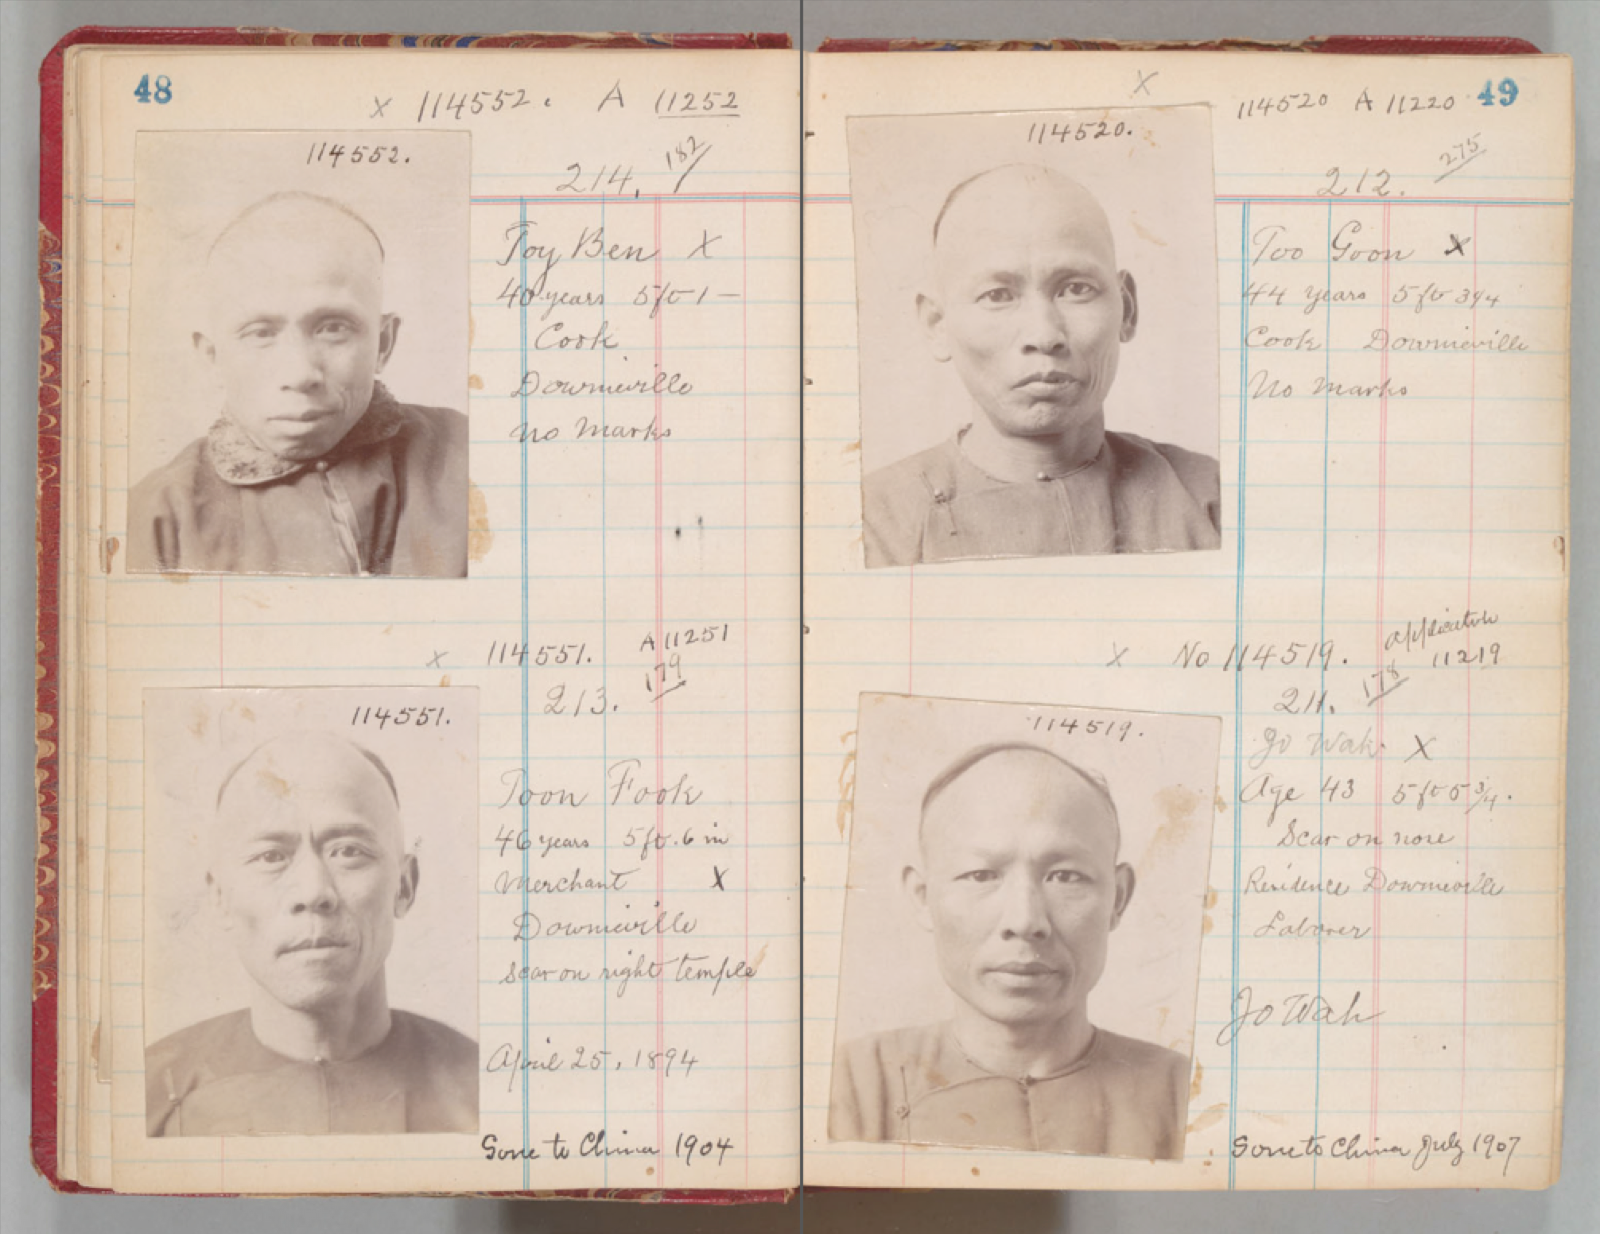 48
x 114552. A 11252
114552.
214. 182/
Toy Ben X
40 years 5 ft 1 —
Cook
Downieville
No Marks
x 114551. A 11251
213. 179
114551.
Toon Fook
46 years 5 ft. 6 in
Merchant X
Downieville
Scar on right temple
April 25, 1894
Gone to China 1904
x
114520 A 11220 49
114520.
212. 275
Too Goon x
44 years 5 ft 3 3/4
Cook Downieville
No Marks
x No 114519. application 11219
211. 178
114519.
Jo Wah X
Age 43 5 ft 5 3/4.
Scar on nose
Residence Downieville
Laborer
Jo Wah
Gone to China July 1907